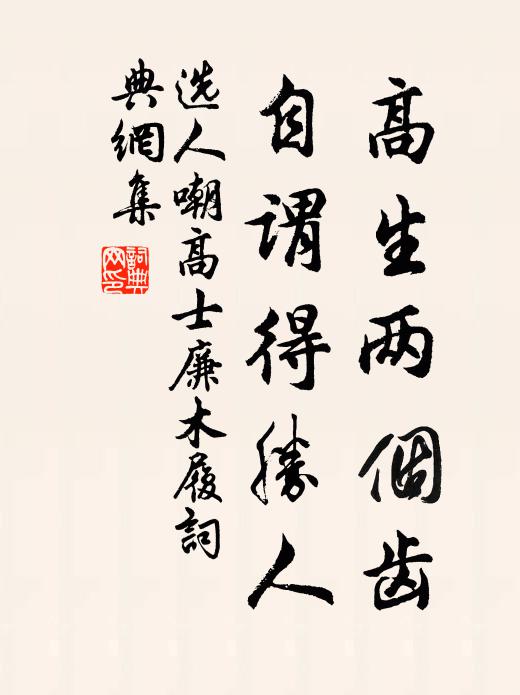 高生两個齿
自谓得勝人
选人嘲高士廉木履詞
典網集
詞典
网印